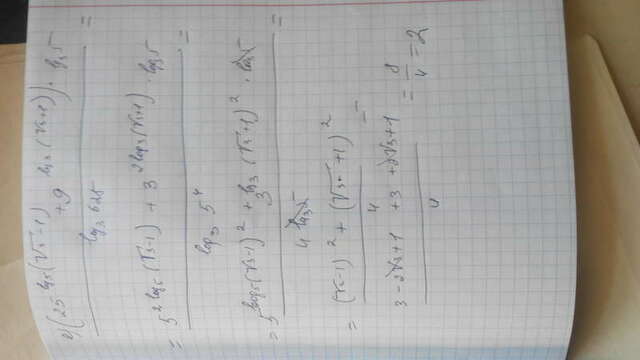 г) (25^(log₅(√3-1)) + 9^(log₃(√3+1))) · log₃5 / log₃625 =
= (5^(2log₅(√3-1)) + 3^(2log₃(√3+1)) · log₃5) / log₃5⁴ =
= (5^(log₅(√3-1)²) + 3^(log₃(√3+1)²) · log₃5) / 4log₃5 =
= ((√3-1)² + (√3+1)²) / 4 =
(3-2√3+1+3+2√3+1) / 4 = 8/4 = 2